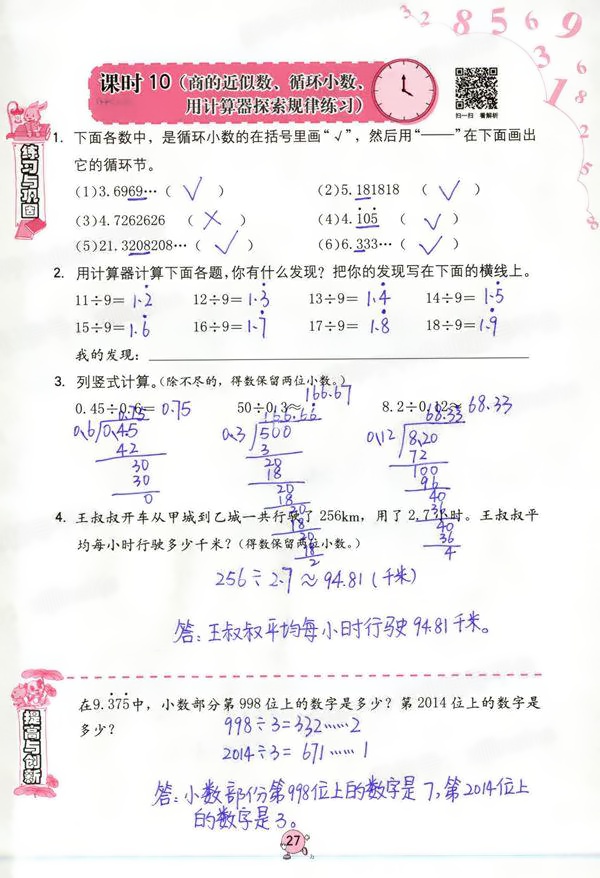 3 2 8 5 6 9
3
1
8
2
5
8
课时 10（商的近似数、循环小数、
用计算器探索规律练习）
扫一扫 看解析
练习与巩固
1. 下面各数中，是循环小数的在括号里画“√”，然后用“——”在下面画出
它的循环节。
(1)3.6969…（ √ ） (2)5.181818（ √ ）
(3)4.7262626（ × ） (4)4.1̇05̇（ √ ）
(5)21.3208208…（ √ ） (6)6.333…（ √ ）
2. 用计算器计算下面各题，你有什么发现？把你的发现写在下面的横线上。
11÷9= 1.2̇ 12÷9= 1.3̇ 13÷9= 1.4̇ 14÷9= 1.5̇
15÷9= 1.6̇ 16÷9= 1.7̇ 17÷9= 1.8̇ 18÷9= 1.9̇
我的发现：
3. 列竖式计算。（除不尽的，得数保留两位小数。）
0.45÷0.6= 0.75 50÷0.3≈ 166.67 8.2÷0.12≈ 68.33
0.75 166.66 68.33
0.6 0.45 0.3 500 0.12 8.20
42 3 72
30 20 100
30 18 96
0 20 40
18 36
20 40
18 36
20 4
18
2
4. 王叔叔开车从甲城到乙城一共行驶了 256km，用了 2.7 小时。王叔叔平
均每小时行驶多少千米？（得数保留两位小数。）
256÷2.7≈94.81（千米）
答：王叔叔平均每小时行驶94.81千米。
提高与创新
在9.3̇75̇中，小数部分第998位上的数字是多少？第2014位上的数字是
多少？
998÷3=332……2
2014÷3=671……1
答：小数部份第998位上的数字是7，第2014位上
的数字是3。
27